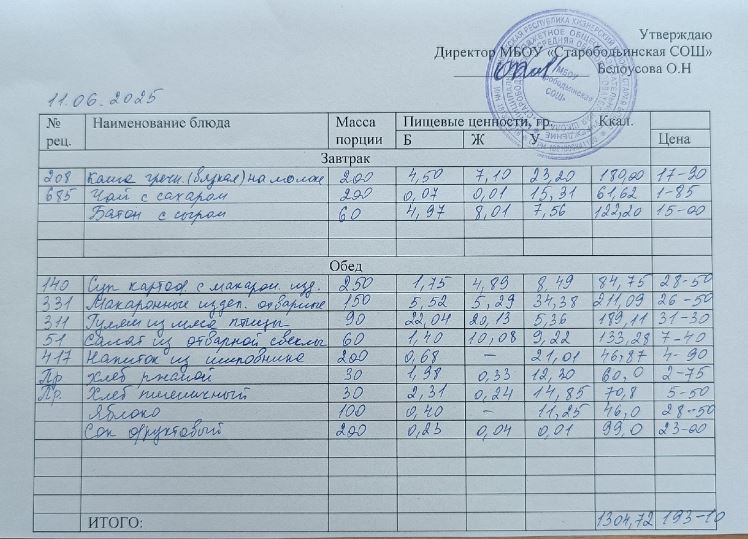 Утверждаю
Директор МБОУ «Старободьинская СОШ»
Белоусова О.Н
11.06.2025
№ рец. Наименование блюда Масса порции Пищевые ценности, гр. Ккал. Цена
Б Ж У
Завтрак
208 Каша гречн. (вязкая) на молоке 200 4,50 7,10 23,20 180,00 17-90
685 Чай с сахаром 200 0,07 0,01 15,31 61,62 1-85
Батон с сыром 60 4,97 8,01 7,56 122,20 15-00
Обед
140 Суп картоф с макарон. изд. 250 1,75 4,89 8,49 84,75 28-50
331 Макаронные издел. отварные 150 5,52 5,29 34,38 211,09 26-50
311 Гуляш из мяса птицы 90 22,04 20,13 5,36 189,11 31-30
51 Салат из отварной свеклы 60 1,40 10,08 9,22 133,28 7-40
417 Напиток из шиповника 200 0,68 – 21,01 46,87 4-90
Пр Хлеб ржаной 30 1,98 0,33 12,30 60,0 2-75
Пр. Хлеб пшеничный 30 2,31 0,24 14,85 70,8 5-50
Яблоко 100 0,40 – 11,25 46,0 28-50
Сок фруктовый 200 0,23 0,04 0,01 99,0 23-00
ИТОГО: 1304,72 193-10